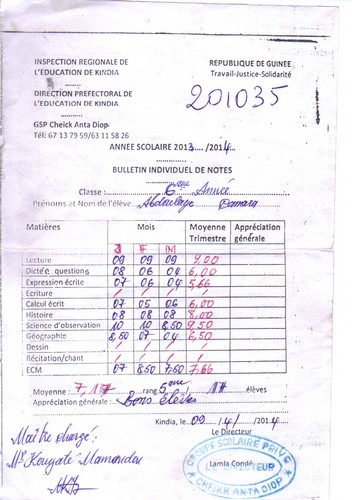 INSPECTION REGIONALE DE
L'EDUCATION DE KINDIA
REPUBLIQUE DE GUINEE
Travail-Justice-Solidarité
DIRECTION PREFECTORAL DE
L'EDUCATION DE KINDIA
201035
GSP Cheick Anta Diop
Tél: 67 13 79 59/63 11 58 26
ANNEE SCOLAIRE 2013..../2014...
BULLETIN INDIVIDUEL DE NOTES
Classe : 6ème Année
Prénoms et Nom de l'élève: Abdoulaye Camara
Matières Mois Moyenne Trimestre Appréciation générale
J F M
Lecture 09 09 09 9,00
Dictée, questions 08 06 04 6,00
Expression écrite 07 06 04 5,66
Ecriture / / / /
Calcul écrit 07 05 06 6,00
Histoire 08 08 08 8,00
Science d'observation 10 10 8,50 9,50
Géographie 8,50 07 04 6,50
Dessin / / / /
Récitation/chant / / / /
ECM 07 8,50 7,50 7,66
Moyenne : 7,17 rang 5ème / 17 élèves
Appréciation générale : Bons élèves
Kindia, le 09 /4/ 2014
Le Directeur
Maître chargé:
Mr Kouyaté Mamoudou
Lamla Condé
GROUPE SCOLAIRE PRIVE
LE DIRECTEUR
CHEIKH ANTA DIOP